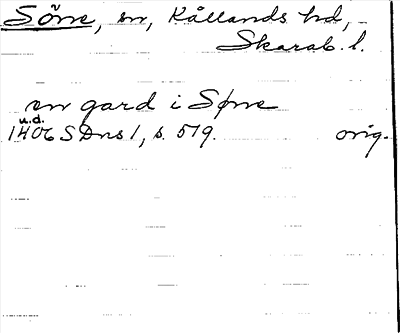 Söne, sn, Kållands hd,
Skarab. l.
en gard i Søne
u.d.
1406 SDns 1, s. 519.
orig.